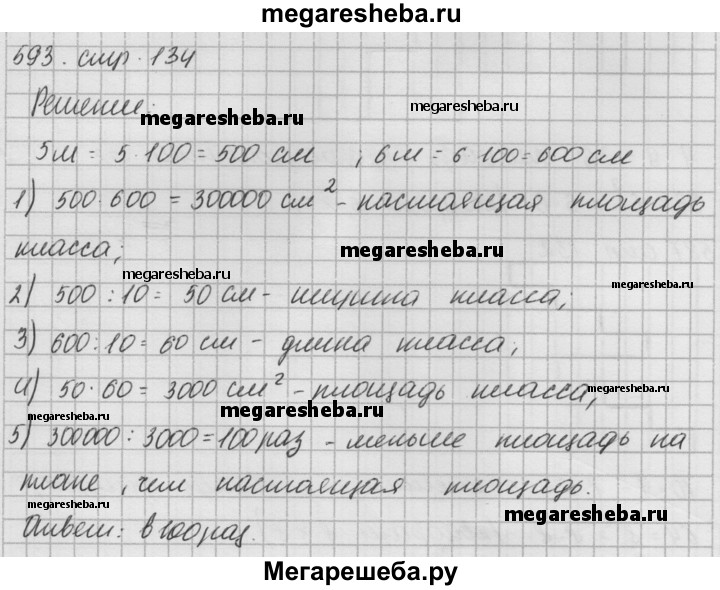 megaresheba.ru
593. стр. 134
Решение:
megaresheba.ru
megaresheba.ru
5м = 5·100 = 500 см ; 6м = 6 100 = 600 см
1) 500·600 = 300000 см² - настоящая площадь
класса;
megaresheba.ru
megaresheba.ru
megaresheba.ru
2) 500 : 10 = 50 см - ширина класса;
3) 600 : 10 = 60 см - длина класса;
4) 50·60 = 3000 см² - площадь класса;
megaresheba.ru
megaresheba.ru
megaresheba.ru
5) 300000 : 3000 = 100 раз - меньше площадь на
плане, чем настоящая площадь.
megaresheba.ru
megaresheba.ru
Ответ: в 100 раз.
Мегарешеба.ру